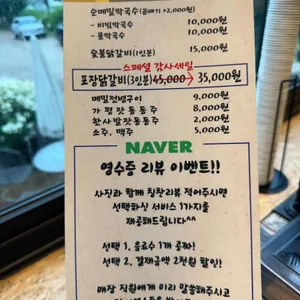 순메밀막국수 (곱빼기 +2,000원)
- 비빔막국수 10,000원
- 물막국수 10,000원
숯불닭갈비(1인분) 15,000원
스페셜 감사세일
포장닭갈비(3인분) 45,000→ 35,000원
메밀전병구이 9,000원
가평잣동동주 8,000원
한사발잣동동주 2,000원
소주, 맥주 5,000원
NAVER
영수증 리뷰 이벤트!!
사진과 함께 칭찬리뷰 적어주시면
선택하신 서비스 1가지를
제공해드립니다^^
선택 1, 음료수 1개 공짜!
선택 2, 결제금액 2천원 할인!
매장 직원에게 미리 말씀해주시고